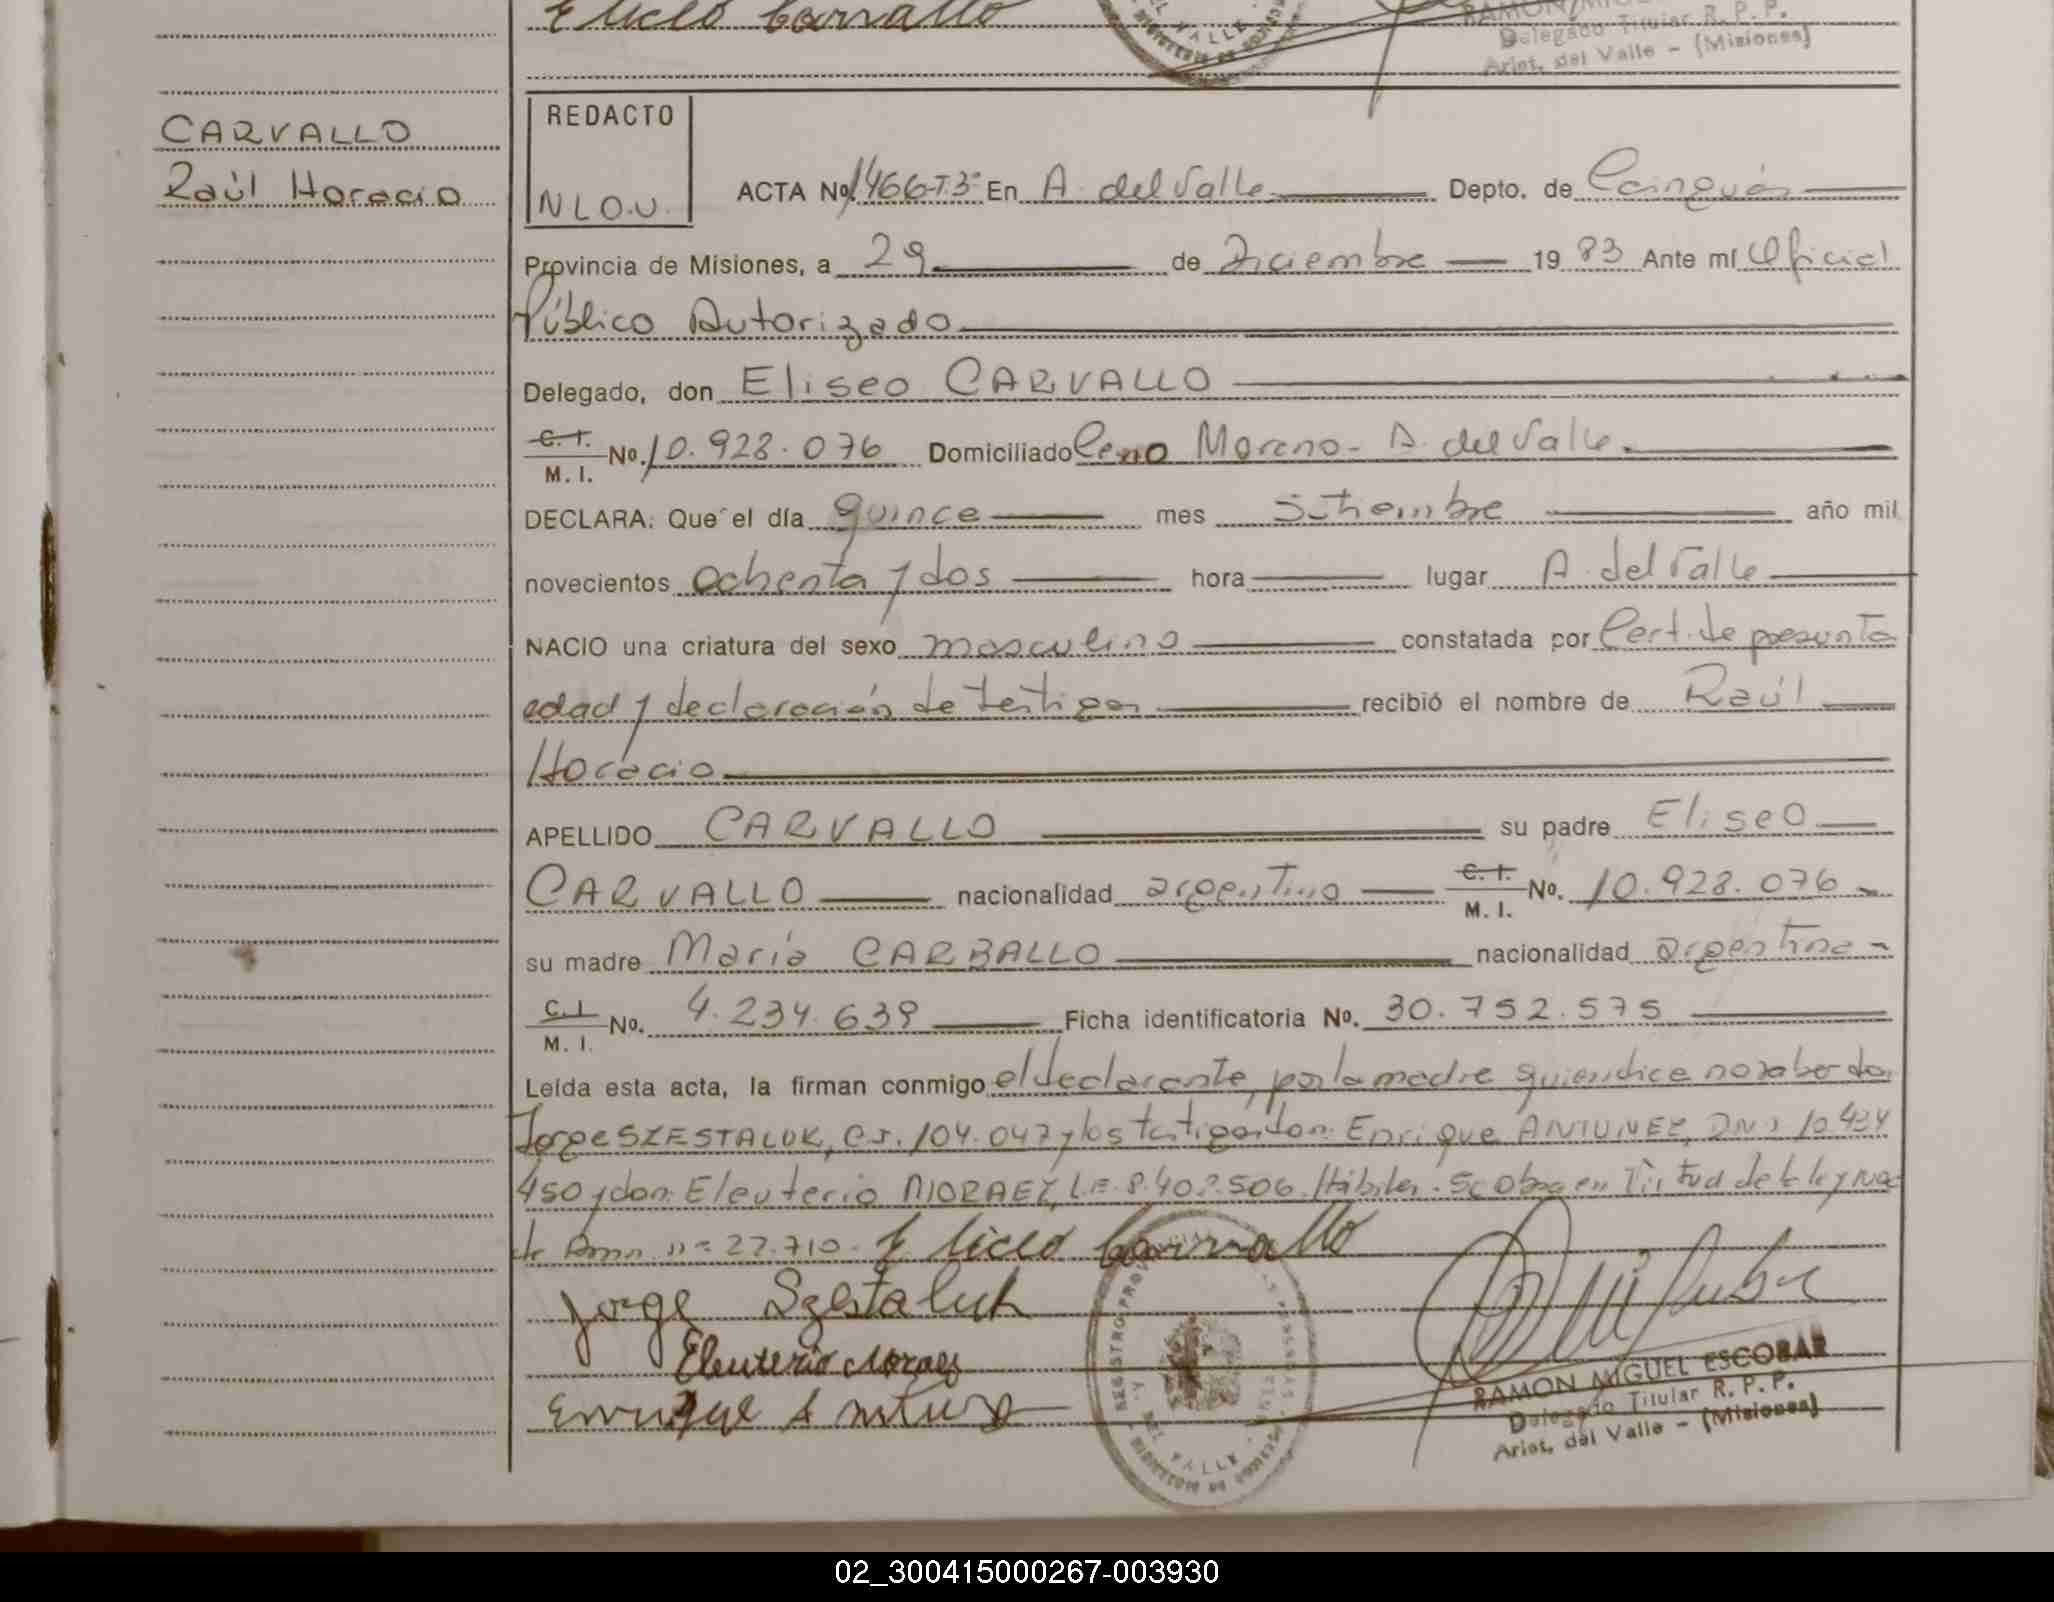 Eliceo Carvallo
Delegado Titular R. P. P.
Arist. del Valle - (Misiones)
CARVALLO
Raúl Horacio
REDACTO
N L O.U.
ACTA No. 1466-T.3º En A. del Valle Depto. de Cainguás
Provincia de Misiones, a 29 de Diciembre 19 83 Ante mí Oficial
Público Autorizado
Delegado, don Eliseo CARVALLO
C. I.
M. I. No. 10.928.076 Domiciliado Cerro Moreno - A. del Valle
DECLARA: Que el día quince mes Setiembre año mil
novecientos ochenta y dos hora lugar A. del Valle
NACIO una criatura del sexo masculino constatada por Cert. de presunta
edad y declaración de testigos recibió el nombre de Raúl
Horacio
APELLIDO CARVALLO su padre Eliseo
CARVALLO nacionalidad argentino C. I. M. I. No. 10.928.076
su madre María CARBALLO nacionalidad argentina
C. I.
M. I. No. 4.234.639 Ficha identificatoria No. 30.752.575
Leída esta acta, la firman conmigo el declarante, por la madre quien dice no saber don
Jorge SZESTALUK, C.I. 104.047 y los testigos don: Enrique ANTUNEZ, DNI 10.424
450 y don: Eleuterio MORAEZ, L.E. 8.402.506. Hábiles. Se obra en Virtud de la ley nac
de Amn nº 22.710.
Eliceo Carvallo
Jorge Szestaluk
Eleuterio Moraes
Enrique Antunez
REGISTRO PROV
DEL VALLE
RAMON MIGUEL ESCOBAR
Delegado Titular R. P. P.
Arist. del Valle - (Misiones)
02_300415000267-003930